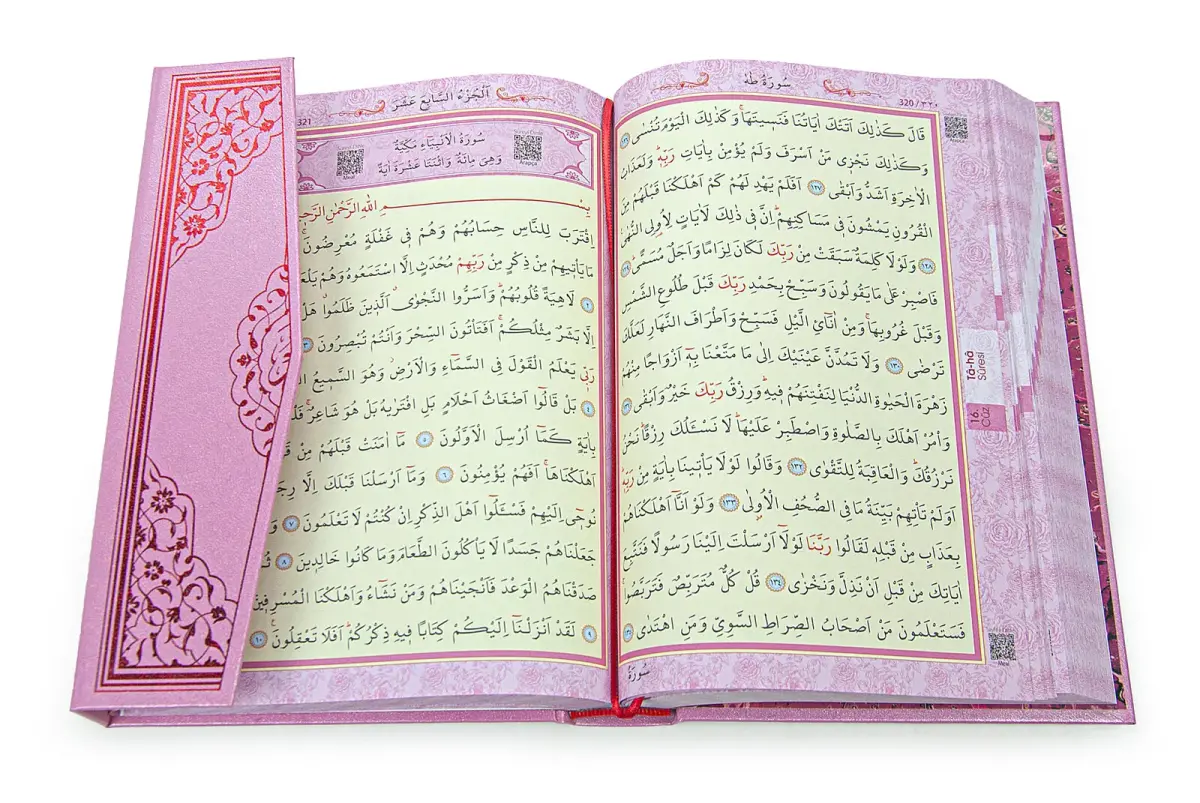 سُورَةُ طٰهٰ
320 / ٣٢٠
قَالَ كَذٰلِكَ اَتَتْكَ اٰيَاتُنَا فَنَسٖيتَهَاۚ وَكَذٰلِكَ الْيَوْمَ تُنْسٰى ﴿١٢٦﴾
وَكَذٰلِكَ نَجْزٖى مَنْ اَسْرَفَ وَلَمْ يُؤْمِنْ بِاٰيَاتِ رَبِّهٖؕ وَلَعَذَابُ
الْاٰخِرَةِ اَشَدُّ وَاَبْقٰى ﴿١٢٧﴾ اَفَلَمْ يَهْدِ لَهُمْ كَمْ اَهْلَكْنَا قَبْلَهُمْ مِنَ
الْقُرُونِ يَمْشُونَ فٖى مَسَاكِنِهِمْؕ اِنَّ فٖى ذٰلِكَ لَاٰيَاتٍ لِاُو۬لِى النُّهٰى
﴿١٢٨﴾ وَلَوْلَا كَلِمَةٌ سَبَقَتْ مِنْ رَبِّكَ لَكَانَ لِزَامًا وَاَجَلٌ مُسَمًّى ﴿١٢٩﴾
فَاصْبِرْ عَلٰى مَا يَقُولُونَ وَسَبِّحْ بِحَمْدِ رَبِّكَ قَبْلَ طُلُوعِ الشَّمْسِ
وَقَبْلَ غُرُوبِهَاۚ وَمِنْ اٰنَآئِ الَّيْلِ فَسَبِّحْ وَاَطْرَافَ النَّهَارِ لَعَلَّكَ
تَرْضٰى ﴿١٣٠﴾ وَلَا تَمُدَّنَّ عَيْنَيْكَ اِلٰى مَا مَتَّعْنَا بِهٖٓ اَزْوَاجًا مِنْهُمْ
زَهْرَةَ الْحَيٰوةِ الدُّنْيَا لِنَفْتِنَهُمْ فٖيهِؕ وَرِزْقُ رَبِّكَ خَيْرٌ وَاَبْقٰى ﴿١٣١﴾
وَأْمُرْ اَهْلَكَ بِالصَّلٰوةِ وَاصْطَبِرْ عَلَيْهَاؕ لَا نَسْـَٔلُكَ رِزْقًاؕ نَحْنُ
نَرْزُقُكَؕ وَالْعَاقِبَةُ لِلتَّقْوٰى ﴿١٣٢﴾ وَقَالُوا لَوْلَا يَأْتٖينَا بِاٰيَةٍ مِنْ رَبِّهٖؕ
اَوَلَمْ تَأْتِهِمْ بَيِّنَةُ مَا فِى الصُّحُفِ الْاُولٰى ﴿١٣٣﴾ وَلَوْ اَنَّٓا اَهْلَكْنَاهُمْ
بِعَذَابٍ مِنْ قَبْلِهٖ لَقَالُوا رَبَّنَا لَوْلَٓا اَرْسَلْتَ اِلَيْنَا رَسُولًا فَنَتَّبِعَ
اٰيَاتِكَ مِنْ قَبْلِ اَنْ نَذِلَّ وَنَخْزٰى ﴿١٣٤﴾ قُلْ كُلٌّ مُتَرَبِّصٌ فَتَرَبَّصُواۚ
فَسَتَعْلَمُونَ مَنْ اَصْحَابُ الصِّرَاطِ السَّوِىِّ وَمَنِ اهْتَدٰى ﴿١٣٥﴾
سُورَةُ
Tâ-hâ
Sûresi
16.
Cüz
Arapça
Meal
اَلْجُزْءُ السَّابِعَ عَشَرَ
321
سُورَةُ الْاَنْبِيَاءِ مَكِّيَّةٌ
وَهِىَ مِائَةٌ وَاثْنَتَا عَشَرَةَ اٰيَةً
Arapça
Meal
بِسْــــــمِ اللّٰهِ الرَّحْمٰنِ الرَّحٖ
اِقْتَرَبَ لِلنَّاسِ حِسَابُهُمْ وَهُمْ فٖى غَفْلَةٍ مُعْرِضُونَۚ
مَا يَأْتٖيهِمْ مِنْ ذِكْرٍ مِنْ رَبِّهِمْ مُحْدَثٍ اِلَّا اسْتَمَعُوهُ وَهُمْ يَلْعَ
﴿٢﴾ لَاهِيَةً قُلُوبُهُمْؕ وَاَسَرُّوا النَّجْوٰىۗ الَّذٖينَ ظَلَمُواۗ هَلْ
اِلَّا بَشَرٌ مِثْلُكُمْۚ اَفَتَأْتُونَ السِّحْرَ وَاَنْتُمْ تُبْصِرُونَ ﴿٣﴾
رَبّٖى يَعْلَمُ الْقَوْلَ فِى السَّمَٓاءِ وَالْاَرْضِؗ وَهُوَ السَّمٖيعُ ال
﴿٤﴾ بَلْ قَالُٓوا اَضْغَاثُ اَحْلَامٍ بَلِ افْتَرٰيهُ بَلْ هُوَ شَاعِرٌۚ فَلْ
بِاٰيَةٍ كَمَٓا اُرْسِلَ الْاَوَّلُونَ ﴿٥﴾ مَٓا اٰمَنَتْ قَبْلَهُمْ مِنْ قَ
اَهْلَكْنَاهَاۚ اَفَهُمْ يُؤْمِنُونَ ﴿٦﴾ وَمَٓا اَرْسَلْنَا قَبْلَكَ اِلَّا رِجَ
نُوحٖٓى اِلَيْهِمْ فَسْـَٔلُٓوا اَهْلَ الذِّكْرِ اِنْ كُنْتُمْ لَا تَعْلَمُونَ ﴿٧﴾ وَ
جَعَلْنَاهُمْ جَسَدًا لَا يَأْكُلُونَ الطَّعَامَ وَمَا كَانُوا خَالِدٖينَ ﴿٨﴾ ثُ
صَدَقْنَاهُمُ الْوَعْدَ فَاَنْجَيْنَاهُمْ وَمَنْ نَشَٓاءُ وَاَهْلَكْنَا الْمُسْرِفٖينَ
﴿٩﴾ لَقَدْ اَنْزَلْنَٓا اِلَيْكُمْ كِتَابًا فٖيهِ ذِكْرُكُمْؕ اَفَلَا تَعْقِلُونَ ﴿١٠﴾